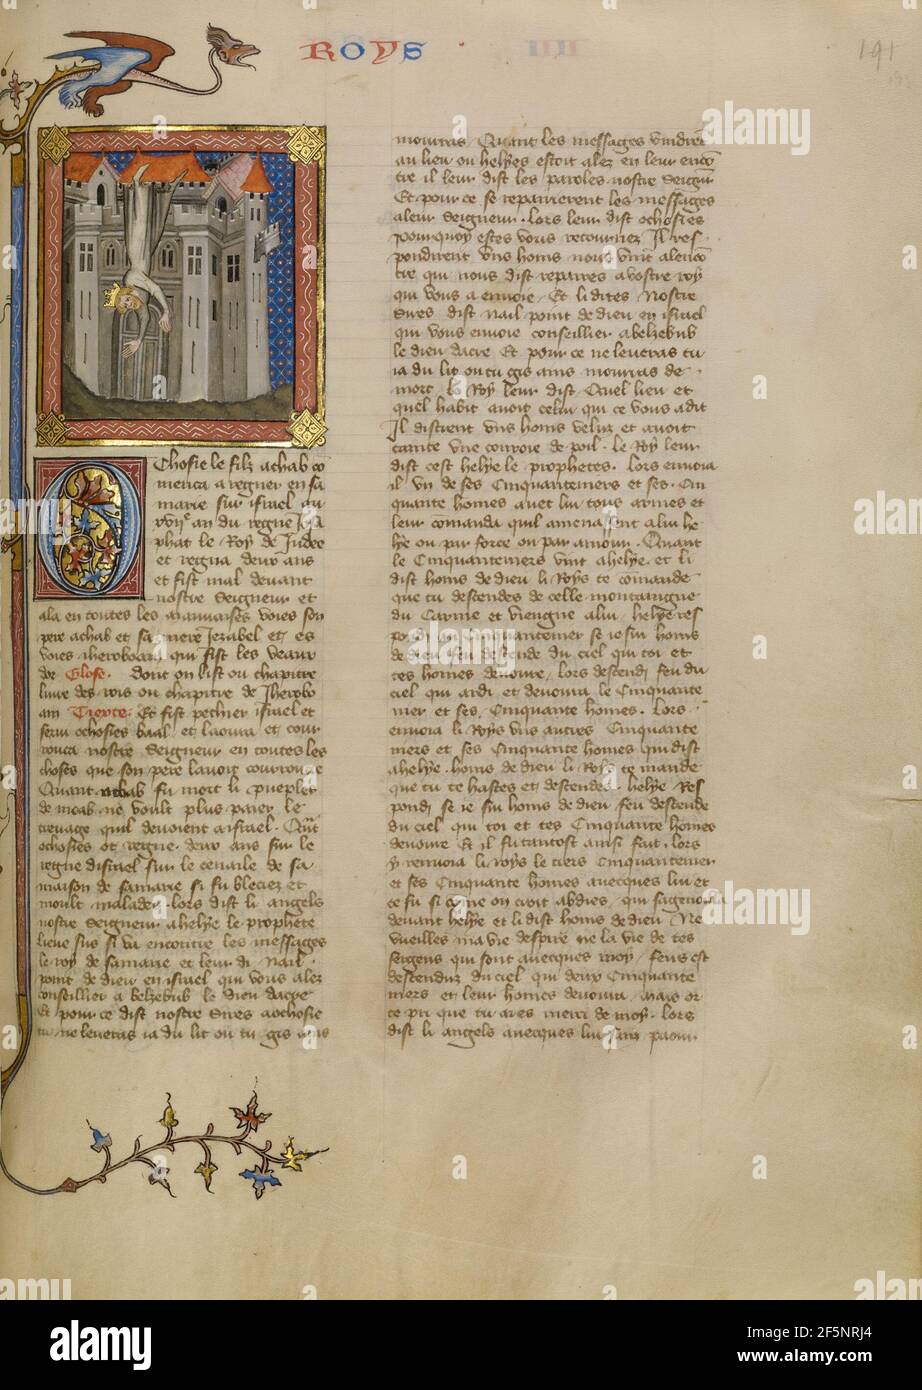 ROYS
191
Ochosie le filz achab co
menca a regner en sa
marie sur israel au
xviie an du regne Josa
phat le Roy de Judee
et regna deux ans
et fist mal devant
nostre Seigneur et
ala en toutes les mauvaises voies son
pere achab et sa mere Jezabel et es
voies iheroboam qui fist les veaux
dor Glose. dont on list ou chapitre
livre des rois ou chapitre de Jherobo
am Texte. Et fist pechier israel et
servi ochosies baal et laoura et cour
rouca nostre Seigneur en toutes les
choses que son pere lavoit courrouce
Quant achab fu mort li pueples
de moab ne voult plus paier le
treuage quil devoient a israel. Quant
ochosies ot regne deux ans sur le
regne disrael sur le cenaile de sa
maison de samarie si fu bleciez et
moult malades. lors dist li angels
nostre Seigneur a helye le prophete
lieve sus si va encontre les messages
le roy de samarie et leur di Nail
point de dieu en israel qui vous alez
conseillier a belzebub le dieu dacre
Et pour ce dist nostre Sires a ochosie
tu ne leveras ia du lit ou tu gis ains
mourras Quant les messages vindrent
au lieu ou helyes estoit alez en leur encon
tre il leur dist les paroles nostre Seigneur
Et pour ce se repairierent les messages
a leur Seigneur. lors leur dist ochosies
pourquoy estes vous retournez Il res
pondirent uns homs nous vint alencon
tre qui nous dist repaires a vostre roy
qui vous a envoie. Et li dites Nostre
Sires dist Nail point de dieu en israel
qui vous envoie conseillier a belzebub
le dieu dacre Et pour ce ne leveras tu
ia du lit ou tu gis ains mourras de
mort. le Roy leur dist Quel lieu et
quel habit avoit celui qui ce vous a dit
Il distrent uns homs veluz et avoit
cainte une couroie de poil. le Roy leur
dist cest helye le prophetes. lors envoia
il un de ses Cinquanteniers et ses Cin
quante homes avec lui tous armes et
leur comanda quil amenassent a lui he
lye ou par force ou par amour. Quant
le Cinquanteniers vint a helye et li
dist homs de dieu li Roys te comande
que tu descendes de celle montaingne
du Carme et viengne a lui. helyes res
pondi au Cinquantenier se ie sui homs
de dieu feu descende du ciel qui toi et
tes homes devoure. lors descendi feu du
ciel qui ardi et devoura le Cinquante
nier et ses Cinquante homes. lors
envoia li Roys uns autres Cinquante
niers et ses Cinquante homes qui dist
a helye. homs de dieu li Roys te mande
que tu te hastes et descendes. helye res
pondi se ie sui homs de dieu feu descende
du ciel qui toi et tes Cinquante homes
devoure Et il fu tantost ainsi fait. lors
y renvoia li roys le tiers Cinquantenier
et ses Cinquante homes avecques lui et
ce fu si come on croit abdies, qui sagenoilla
devant helye et li dist homs de dieu Ne
vueilles ma vie despire ne la vie de tes
sergens qui sont avecques moy. feus est
descenduz du ciel qui deux Cinquante
niers et leur homes devoura. Mais or
te pri que tu aies merci de moy. lors
dist li angels avecques lui sanz paour
alamy
Image ID: 2F5NRJ4
www.alamy.com